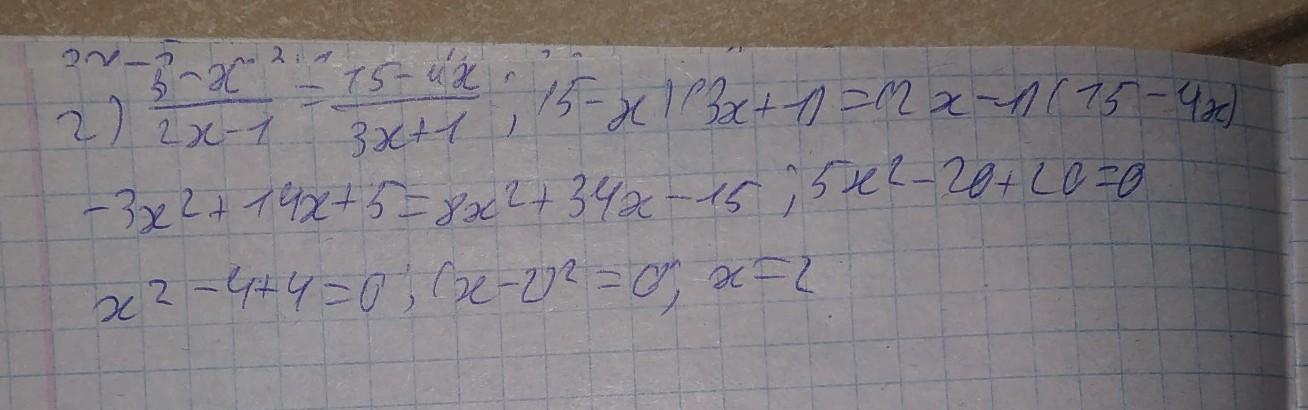 2) 5-x/2x-1 = 15-4x/3x+1 ; (5-x)(3x+1)=(2x-1)(15-4x)
-3x²+14x+5=8x²+34x-15 ; 5x²-20+20=0
x²-4+4=0 ; (x-2)²=0 ; x=2